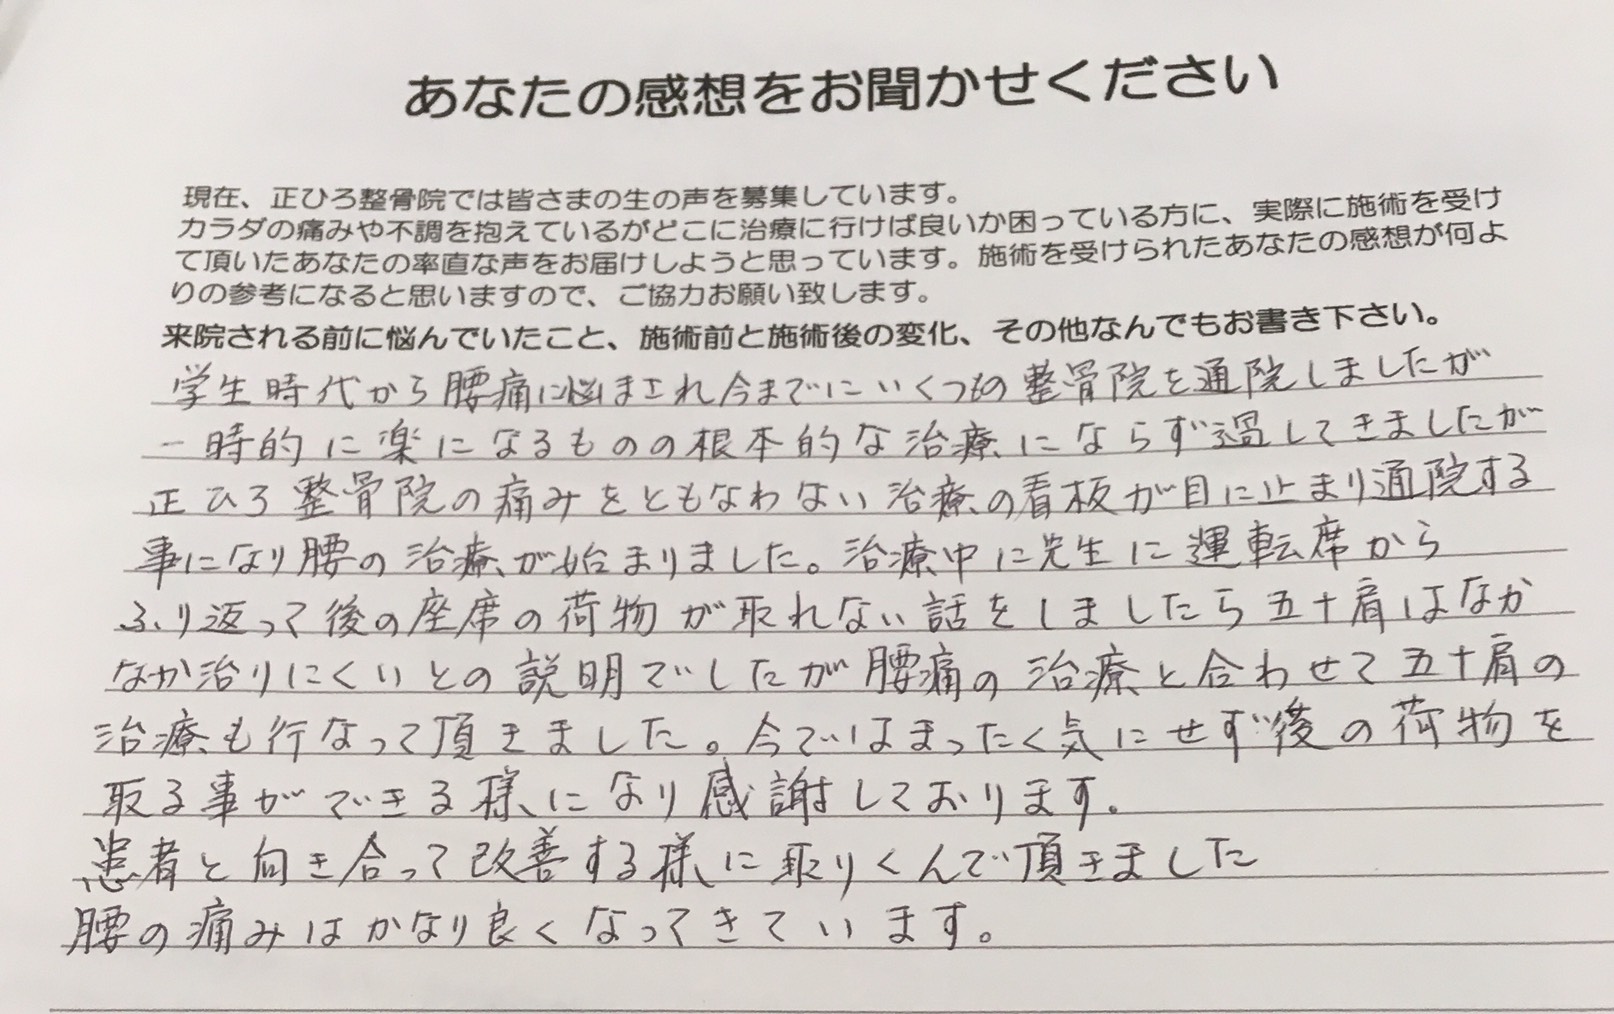 あなたの感想をお聞かせください
現在、正ひろ整骨院では皆さまの生の声を募集しています。
カラダの痛みや不調を抱えているがどこに治療に行けば良いか困っている方に、実際に施術を受け
て頂いたあなたの率直な声をお届けしようと思っています。施術を受けられたあなたの感想が何よ
りの参考になると思いますので、ご協力お願い致します。
来院される前に悩んでいたこと、施術前と施術後の変化、その他なんでもお書き下さい。
学生時代から腰痛に悩まされ今までにいくつもの整骨院を通院しましたが
一時的に楽になるものの根本的な治療にならず過してきましたが
正ひろ整骨院の痛みをともなわない治療の看板が目に止まり通院する
事になり腰の治療が始まりました。治療中に先生に運転席から
ふり返って後の座席の荷物が取れない話をしましたら五十肩はなか
なか治りにくいとの説明でしたが腰痛の治療と合わせて五十肩の
治療も行なって頂きました。今ではまったく気にせず後の荷物を
取る事ができる様になり感謝しております。
患者と向き合って改善する様に取りくんで頂きました
腰の痛みはかなり良くなってきています。